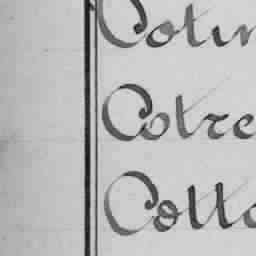 Cotin
Cotre
Cotte